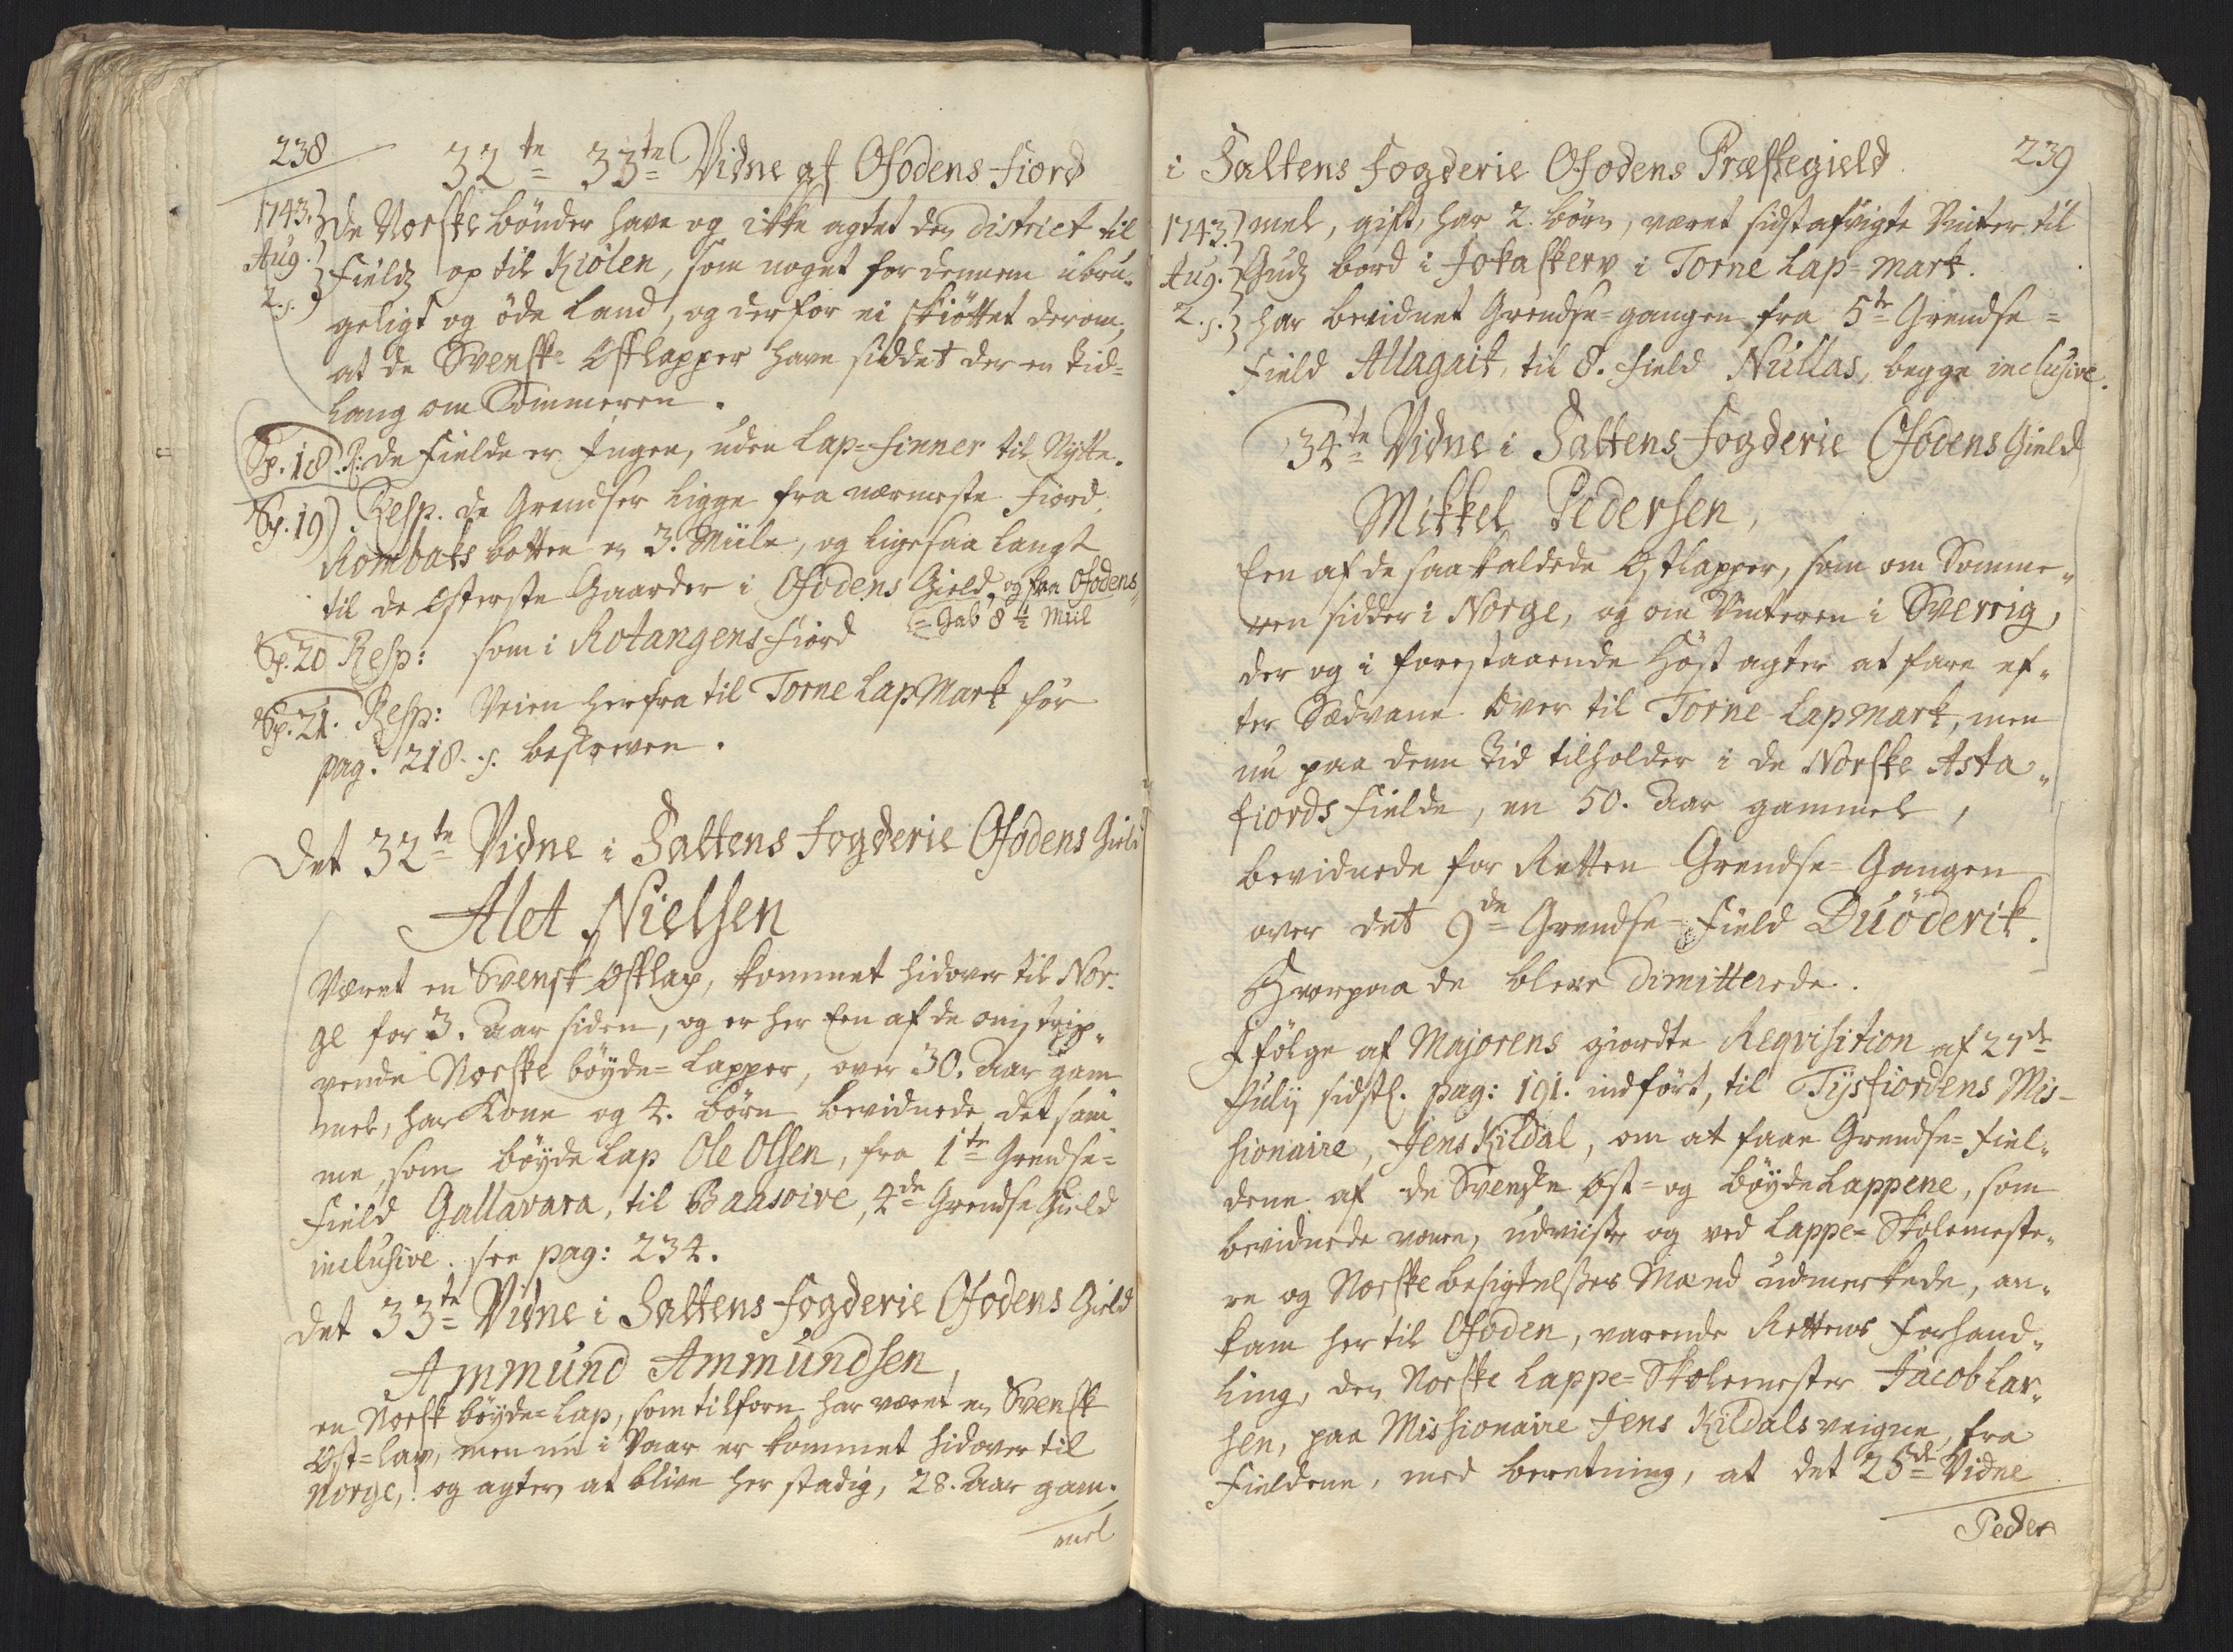 238
32te 33te Vidne af Ofodens Fiord
1743.
Aug.
2. s.
De Norske bönder have og ikke agtet den District til
Fields op til Kiölen, som noget for dennem ubru-
geligt og öde Land, og derfor ei skiöttet derom,
at de Svenske Østlapper have siddet der en tid-
lang om Sommeren.
Sp. 18. R: de Fielde er Ingen, uden Lap-Finner til Nytte.
Sp. 19) Resp. de Grendser ligge fra nærmeste Fiord,
Rombaks botten en 3. Miile, og ligesaa langt
til de Østerste Gaarder i Ofodens Gield, og fra Ofodens
= Gab 8 ½ Miil
Sp. 20 Resp: som i Rotangens Fiord
Sp. 21. Resp: Veien herfra til Torne LapMark för
pag. 218. s. beskreven.
Det 32te Vidne i Saltens Fogderie Ofodens Gield
Alet Nielsen
Været en Svensk Østlap, kommet hidover til Nor-
ge for 3. Aar siden, og er her Een af de omstrip-
vende Norske böyde-Lapper, over 30. Aar gam
mel, har Kone og 4. börn bevidnede det sam-
me, som böyde Lap Ole Olsen, fra 1te Grendse-
Field Gallavara, til Baasoive, 4de Grendse Field
inclusive. see pag: 234.
Det 33te Vidne i Saltens Fogderie Ofodens Gield
Ammund Ammundsen,
en Norsk böyde-Lap, som tilforn har været en Svensk
Øst-Lap, men nu i Vaar er kommet hidover til
Norge, og agter at blive her stadig, 28. Aar gam-
mel
i Saltens Fogderie Ofodens Præstegield.
239
1743.
Aug.
2. s.
mel, gift, har 2. börn, været sidstafvigte Vinter til
Guds bord i Jokaskerv i Torne Lap-Mark.
har bevidnet Grendse-gangen fra 5te Grendse-
Field Allagait, til 8. Field Nullas, begge inclusive.
34te Vidne i Saltens Fogderie Ofodens Gield
Mikkel Pedersen,
Een af de saakaldede Østlapper, som om Somme-
ren sidder i Norge, og om Vinteren i Sverrig,
der og i forestaaende Höst agter at fare ef-
ter Sædvane over til Torne-Lapmark, men
nu paa denne tid tilholder i de Norske Asta-
fiords Fielde, en 50. Aar gammel,
bevidnede for Retten Grendse-Gangen
over det 9de Grendse-Field Duöderik.
Hvorpaa de bleve Dimitterede.
I fölge af Majorens giordte Reqvisition af 27de
July sidstl. pag: 191. indfört, til Tysfiordens Mis-
sionaire, Jens Kildal, om at faae Grendse-Fiel-
dene af de Svenske Øst- og böyde Lappene, som
bevidnede vare, udviiste og ved Lappe-Skolemeste-
re og Norske besigtelses Mænd udmerkede, an-
kam her til Ofoden, varende Rettens Forhand-
ling, den Norske Lappe-Skolemester Jacob Lar-
sen, paa Missionaire Jens Kildals veigne, fra
Fieldene, med beretning, at det 25de Vidne
Peder